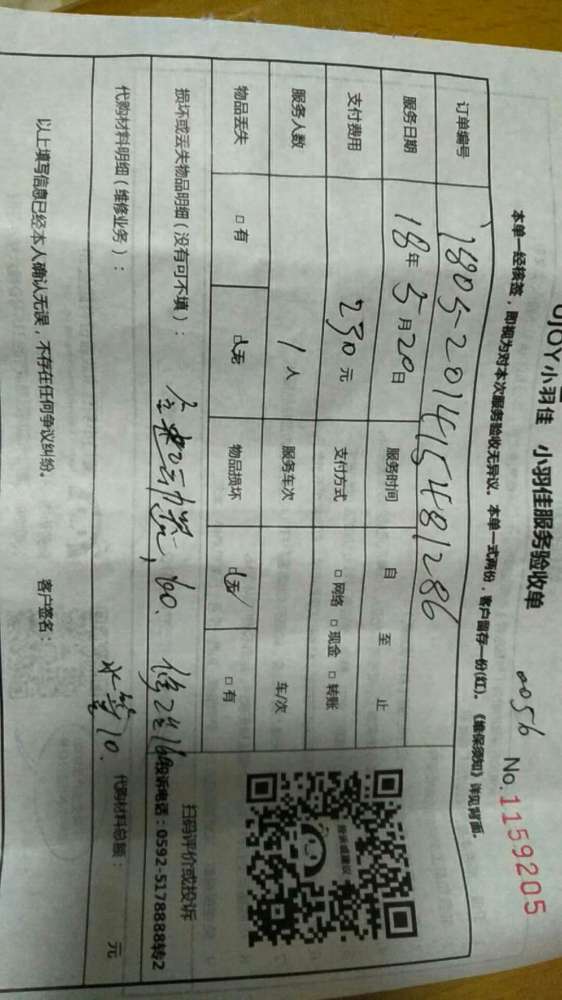 JOY小羽佳 小羽佳服务验收单
0056 No.1159205
本单一经核签，即视为对本次服务验收无异议。本单一式两份，客户留存一份(红)。《维保须知》详见背面。
订单编号 1805-201415481286
服务日期 18年5月20日 服务时间 自 至 止
支付费用 230元 支付方式 □网络 □现金 □转账
服务人数 1人 服务车次 车/次
物品丢失 □有 ☑无 物品损坏 ☑无 □有
投诉或建议
扫码评价或投诉
投诉电话：0592-5178888转2
损坏或丢失物品明细（没有可不填）： 60. 160
代购材料明细（维修业务）： 水管10. 代购材料总额： 元
以上填写信息已经本人确认无误，不存在任何争议纠纷。 客户签名：